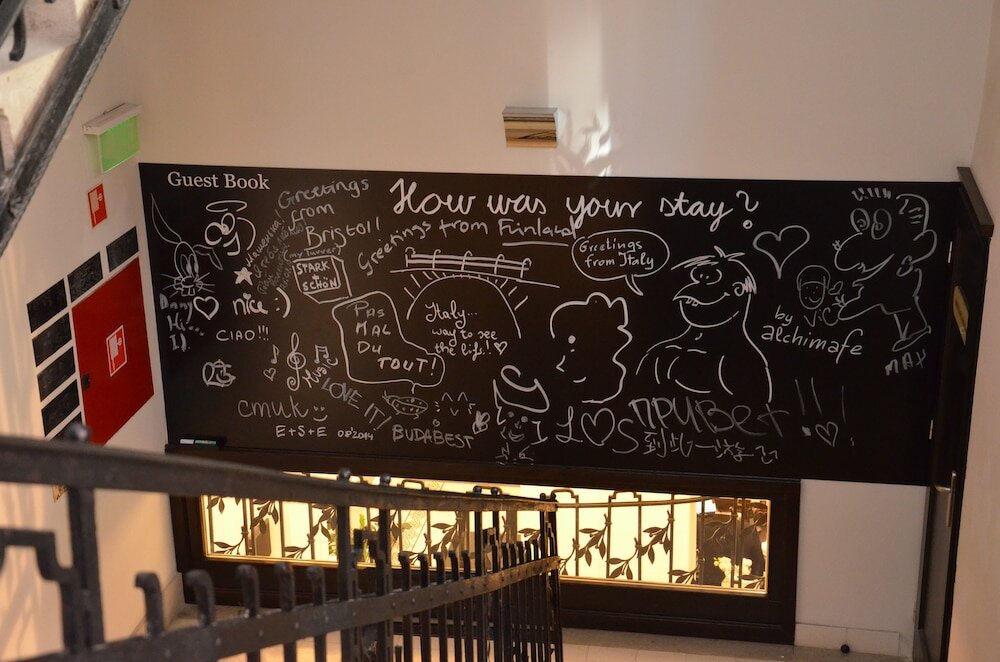 Guest Book
How was your stay?
Greetings
from
Bristol!
Greetings from Finland
STARK
SCHÖN
Greetings
from Italy
nice :)
CIAO!!!
Hi...
PAS
MAL
DU
TOUT!
Italy...
way to see
the life!!
by
alchimafe
MAX
MUSIC
LOVE IT!!
cmuk
E+S+E 08'2014
BUDABEST
ПРИВет !!!
到此一游